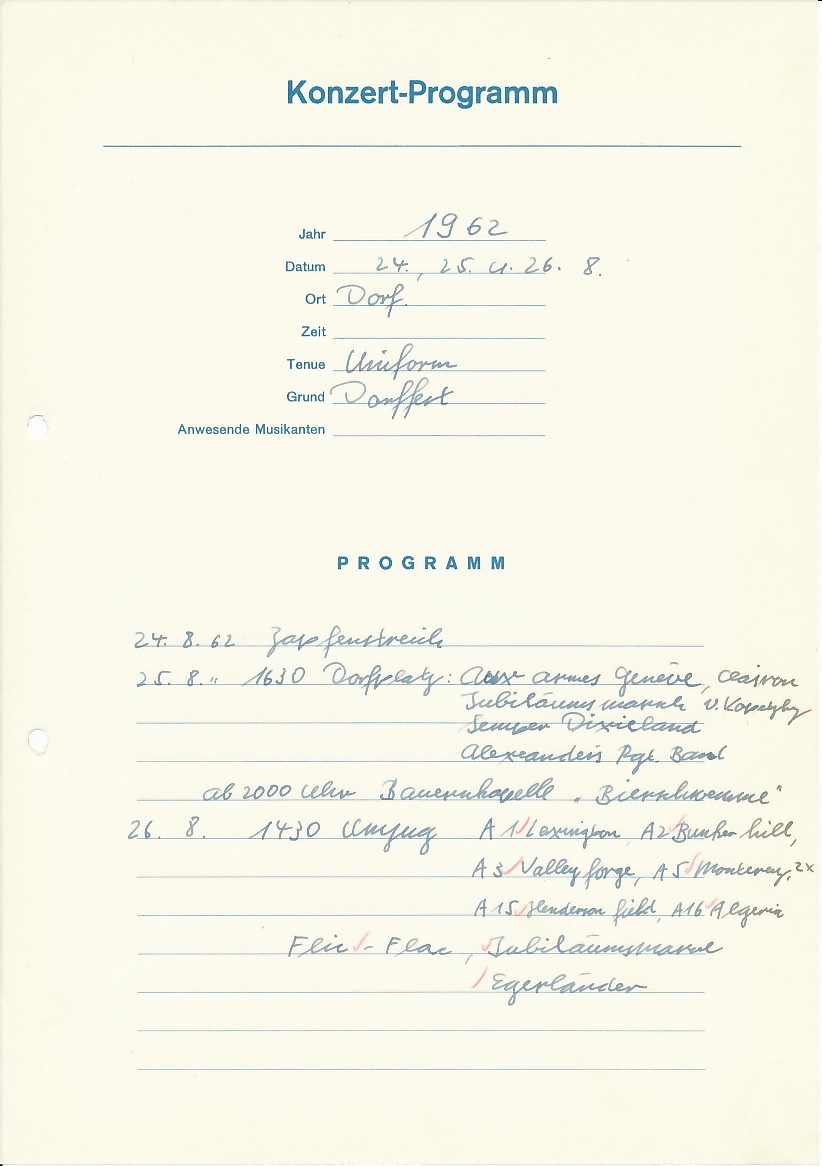 Konzert-Programm
Jahr 1962
Datum 24., 25. u. 26. 8.
Ort Dorf.
Zeit
Tenue Uniform
Grund Dorffest
Anwesende Musikanten
PROGRAMM
24. 8. 62 Zapfenstreich
25. 8. " 1630 Dorfplatz: Aux armes Genève, Clairon
Jubiläumsmarsch v. Kopetzky
Semper Dixieland
Alexanders Rgt. Band
ab 2000 Uhr Bauernkapelle "Bierschwemme"
26. 8. 1430 Umzug A 1 Lexington A2 Bunker hill,
A 3 Valley forge, A 5 Monterey, 2x
A 15 Henderson field, A16 Algeria
Flic - Flac, Jubiläumsmarsch
Egerländer